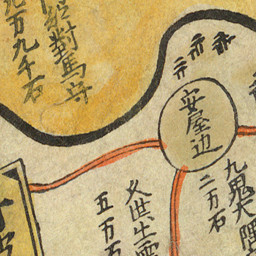 對馬守
九万九千石
安屋辺
九鬼大隅
二万石
久世出雲
五万石